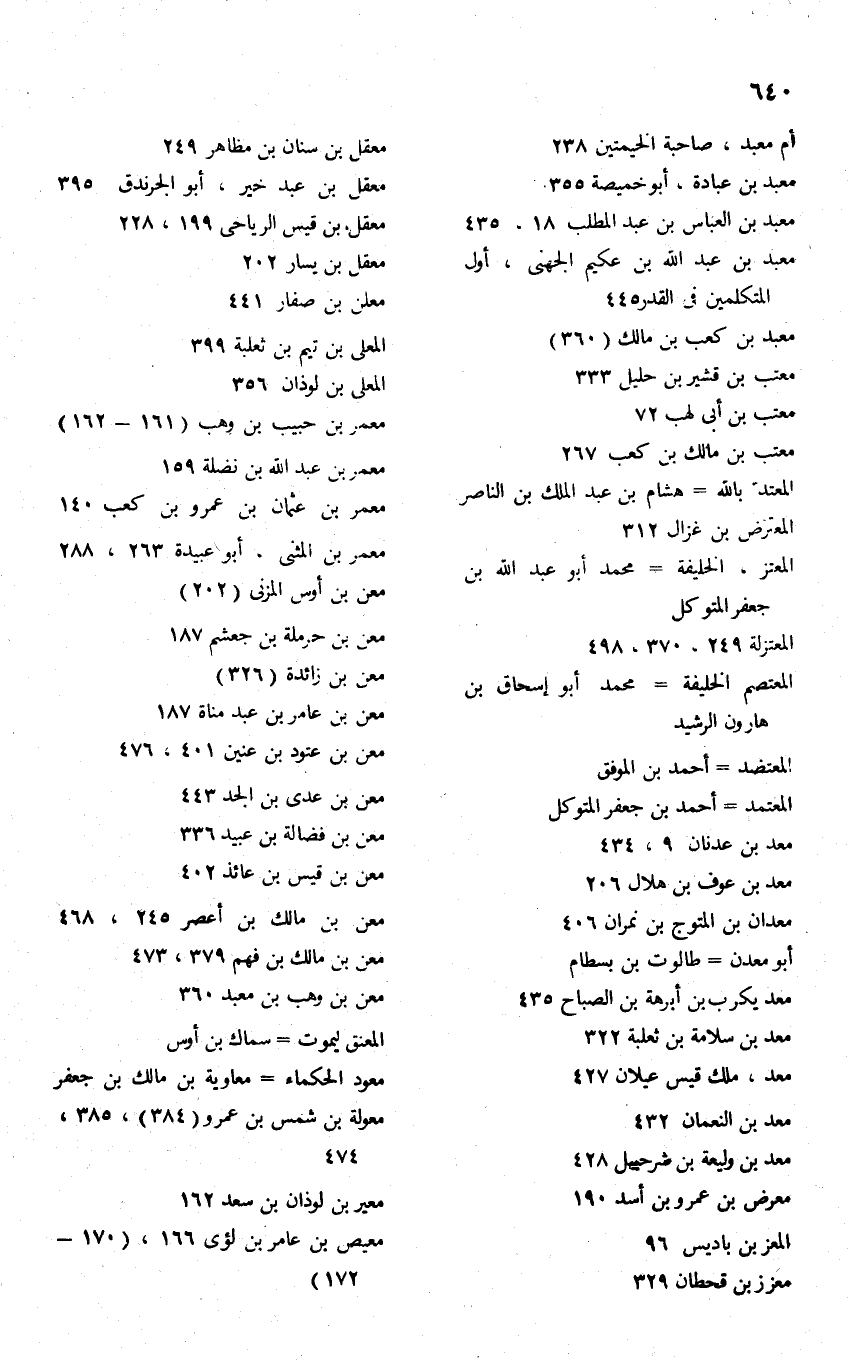 ٦٤٠
أم معبد ، صاحبة الخيمتين ٢٣٨
معبد بن عبادة ، أبو خميصة ٣٥٥
معبد بن العباس بن عبد المطلب ١٨ ، ٤٣٥
معبد بن عبد الله بن عكيم الجهنى ، أول
المتكلمين فى القدر ٤٤٥
معبد بن كعب بن مالك ( ٣٦٠ )
معتب بن قشير بن حليل ٣٣٣
معتب بن أبى لهب ٧٢
معتب بن مالك بن كعب ٢٦٧
المعتدّ بالله = هشام بن عبد الملك بن الناصر
المعترض بن غزال ٣١٢
المعتز ، الخليفة = محمد أبو عبد الله بن
جعفر المتوكل
المعتزلة ٢٤٩ ، ٣٧٠ ، ٤٩٨
المعتصم الخليفة = محمد أبو إسحاق بن
هارون الرشيد
المعتضد = أحمد بن الموفق
المعتمد = أحمد بن جعفر المتوكل
معد بن عدنان ٩ ، ٤٣٤
معد بن عوف بن هلال ٢٠٦
معدان بن المتوج بن نمران ٤٠٦
أبو معدن = طالوت بن بسطام
معد يكرب بن أبرهة بن الصباح ٤٣٥
معد بن سلامة بن ثعلبة ٣٢٢
معد ، ملك قيس عيلان ٤٢٧
معد بن النعمان ٤٣٢
معد بن وليعة بن شرحبيل ٤٢٨
معرض بن عمرو بن أسد ١٩٠
المعز بن باديس ٩٦
معزز بن قحطان ٣٢٩
معقل بن سنان بن مظاهر ٢٤٩
معقل بن عبد خير ، أبو الجرندق ٣٩٥
معقل بن قيس الرياحى ١٩٩ ، ٢٢٨
معقل بن يسار ٢٠٢
معلن بن صفار ٤٤١
المعلى بن تيم بن ثعلبة ٣٩٩
المعلى بن لوذان ٣٥٦
معمر بن حبيب بن وهب ( ١٦١ – ١٦٢ )
معمر بن عبد الله بن نضلة ١٥٩
معمر بن عثمان بن عمرو بن كعب ١٤٠
معمر بن المثنى ، أبو عبيدة ٢٦٣ ، ٢٨٨
معن بن أوس المزنى ( ٢٠٢ )
معن بن حرملة بن جعشم ١٨٧
معن بن زائدة ( ٣٢٦ )
معن بن عامر بن عبد مناة ١٨٧
معن بن عتود بن عنين ٤٠١ ، ٤٧٦
معن بن عدى بن الجد ٤٤٣
معن بن فضالة بن عبيد ٣٣٦
معن بن قيس بن عائذ ٤٠٢
معن بن مالك بن أعصر ٢٤٥ ، ٤٦٨
معن بن مالك بن فهم ٣٧٩ ، ٤٧٣
معن بن وهب بن معبد ٣٦٠
المعنق ليموت = سماك بن أوس
معود الحكماء = معاوية بن مالك بن جعفر
معولة بن شمس بن عمرو ( ٣٨٤ ) ، ٣٨٥ ،
٤٧٤
معير بن لوذان بن سعد ١٦٢
معيص بن عامر بن لؤى ١٦٦ ، ( ١٧٠ –
١٧٢ )